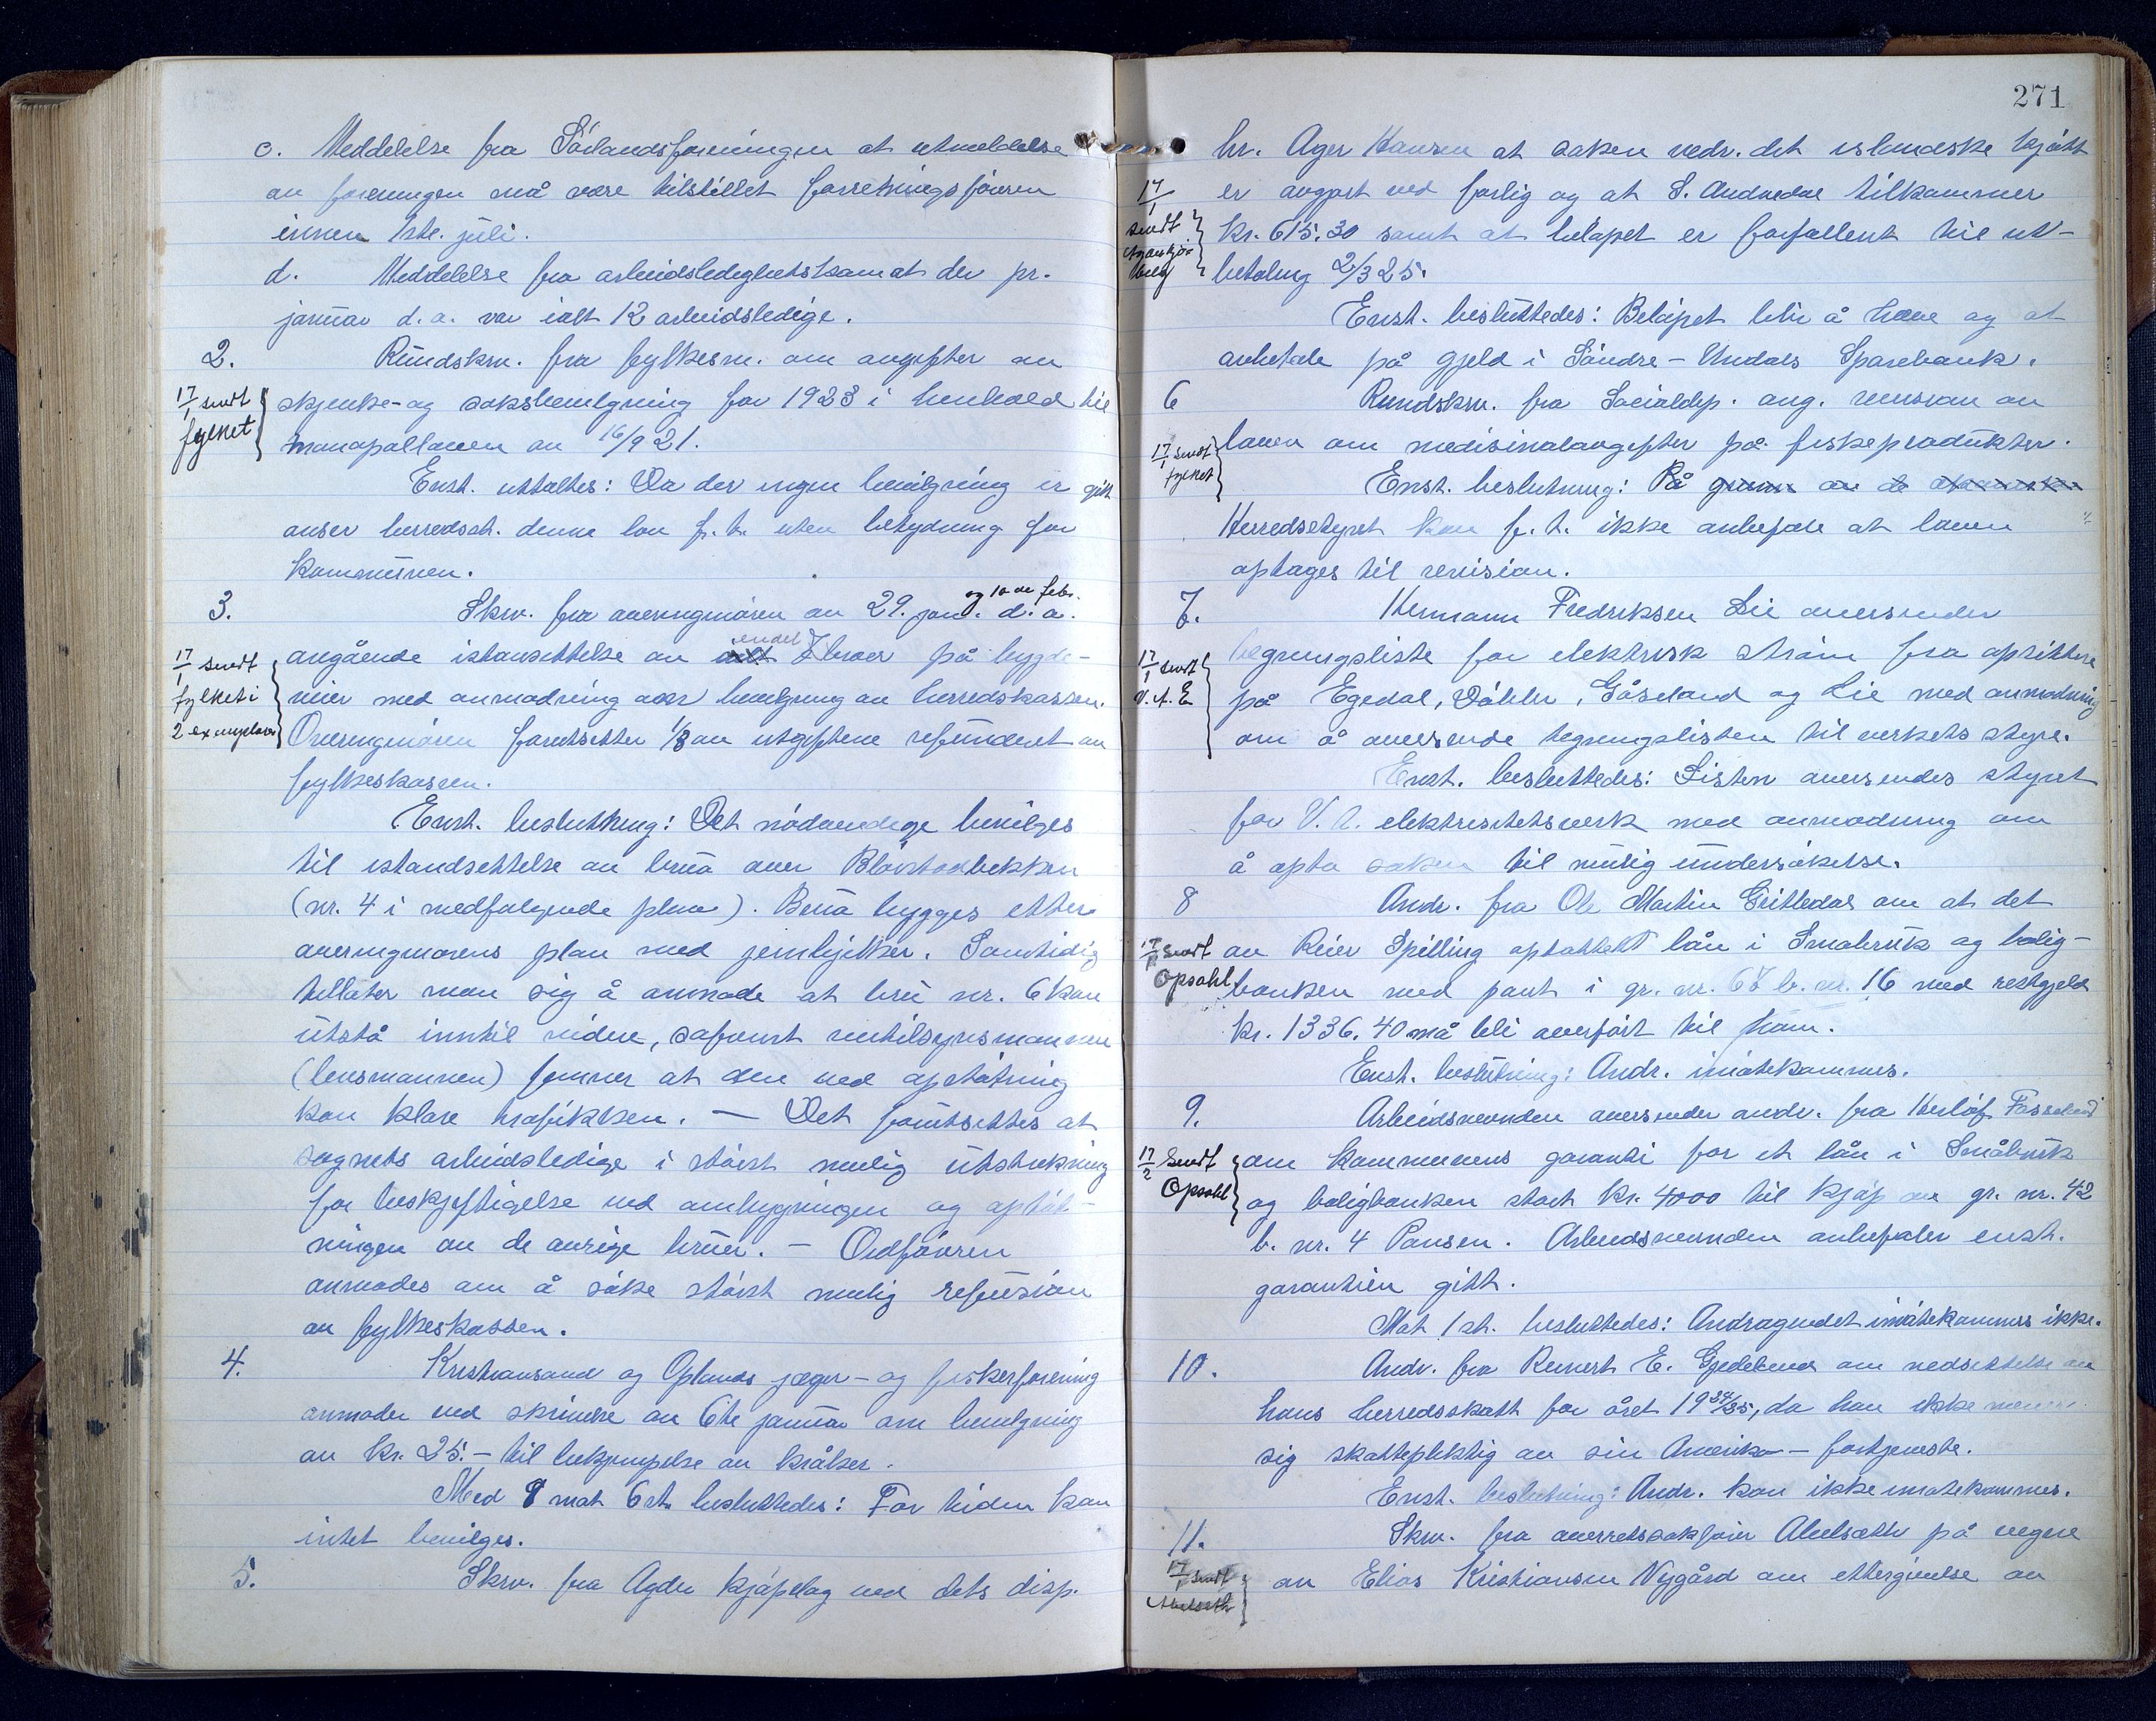 c. Meddelelse fra Sørlandsforeningen at utmeldelse
av foreningen må være tilstillet forretningsføreren
innen 1ste. juli.
d. Meddelelse fra arbeidsledighetskom at der pr.
januar d.a. var ialt 12 arbeidsledige.
2. Rundskrv. fra fylkesm. om avgifter av
17/1 sendt fylket
skjenke- og saksbevilgning for 1923 i henhold til
monopolloven av 16/9 21.
Enst. uttaltes: Da der ingen bevilgning er gitt
anser herredsst. denne lov f. t. uten betydning for
kommunen.
3. Skrv. fra overingeniøren av 29. jan. og 10de febr. d. a.
17/1 sendt fylket i 2 exemplarer
angående istansettelse av endel bruer på bygde-
veier med anmodning om bevilgning av herredskassen.
Overingeniøren forutsetter 1/3 av utgiftene refundert av
fylkeskassen.
Enst. beslutning: Det nødvendige bevilges
til istandsettelse av brua over bekken
(nr. 4 i medfølgende plan). Brua bygges etter
overingeniørens plan med jernbjelker. Samtidig
tillater man sig å anmode at bru nr. 6 kan
utstå inntil videre, såfremt veitilsynsmannen
(lensmannen) finner at den ved opstøtning
kan klare trafikken. — Det forutsettes at
sognets arbeidsledige i størst mulig utstrekning
får beskjeftigelse ved ombygningen og opstøt-
ningen av de øvrige bruer. — Ordføreren
anmodes om å søke størst mulig refusion
av fylkeskassen.
4. Kristiansand og Oplands jæger- og fiskerforening
anmoder ved skrivelse av 6te januar om bevilgning
av kr. 25.- til bekjempelse av kråker.
Med 9 mot 6 st. besluttedes: For tiden kan
intet bevilges.
5. Skrv. fra Agder kjøpelag ved dets disp.
271
hr. Ager Hansen at saken vedr. det islandske kjøtt
17/1 sendt
er avgjort ved forlig og at S. Audnedal tilkommer
kr. 615.30 samt at beløpet er forfallent til ut-
betaling 2/3 25.
Enst. besluttedes: Beløpet blir å heve og at
avbetale på gjeld i Søndre-Undals Sparebank.
6 Rundskrv. fra Socialdep. ang. revision av
17/1 sendt fylket
loven om medisinalavgifter på fiskeprodukter.
Enst. beslutning: På grunn av de
Herredsstyret kan f. t. ikke anbefale at loven
optages til revision.
7. Hermann Fredriksen Lie oversender
17/1 sendt V. A. E
tegningsliste for elektrisk strøm fra opsittere
på Egedal, Døhle, Gåseland og Lie med anmodning
om å oversende tegningslisten til verkets styre.
Enst. besluttedes: Listen oversendes styret
for V. A. elektrisitetsverk med anmodning om
å opta saken til mulig undersøkelse.
8 Andr. fra Ole Martin Gritledal om at det
17/1 sendt Opsahl
av Reier Spilling optatte lån i Småbruk og bolig-
banken med pant i gr. nr. 67 b. nr. 16 med restgjeld
kr. 1336.40 må bli overført til ham.
Enst. beslutning: Andr. imøtekommes.
9. Arbeidsnevnden oversender andr. fra Herlof Fasseland
17/2 sendt Opsahl
om kommunens garanti for et lån i Småbruk
og boligbanken stort kr. 4000 til kjøp av gr. nr. 42
b. nr. 4 Arbeidsnevnden anbefaler enst.
garantien gitt.
Mot 1 st. besluttedes: Andragendet imøtekommes ikke.
10. Andr. fra Reinert E. om nedsettelse av
hans herredsskatt for året 1934/35, da han ikke mener
sig skattepliktig av sin Amerika-fortjeneste.
Enst. beslutning: Andr. kan ikke imøtekommes.
11. Skrv. fra overretssakfører Abelseth på vegne
17/1 sendt Abelseth
av Elias Kristiansen Nygård om ettergivelse av